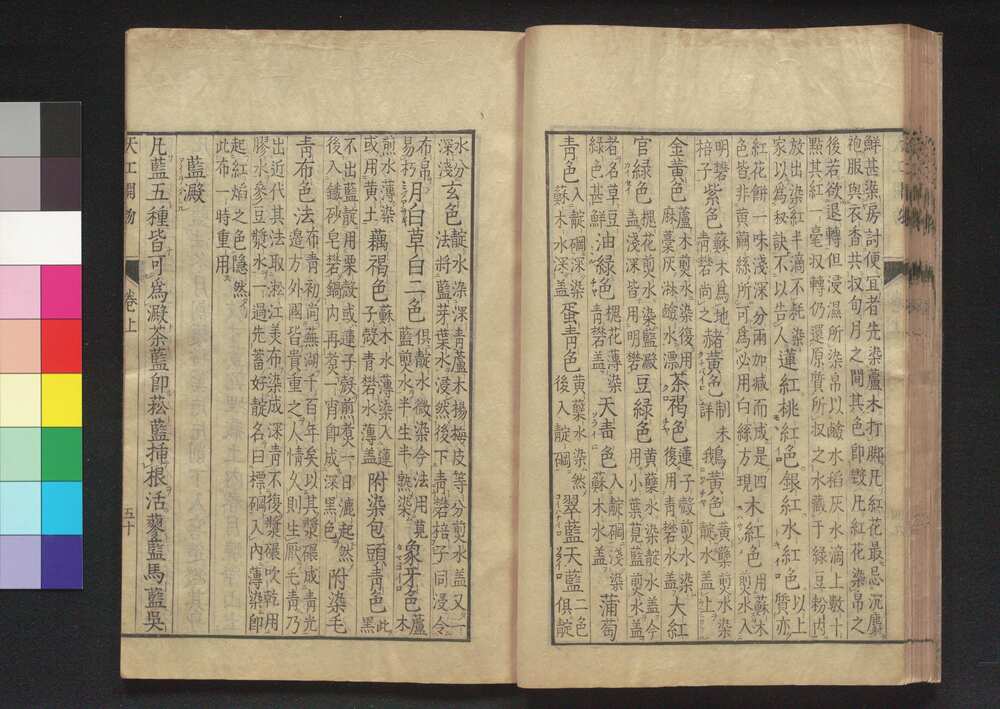 鮮甚染房討便宜者先染蘆木打脚凡紅花最忌沉麝
袍服與衣香共收旬月之間其色即毀凡紅花染帛之
後若欲退轉但浸濕所染帛以鹼水稻灰水滴上數十
點其紅一毫收轉仍還原質所收之水藏于綠豆粉內
放出染紅半滴不耗染
家以爲秘訣不以告人
蓮紅桃紅色銀紅水紅色
以上
質亦
紅花餅一味淺深分兩加減而成是四
色皆非黃繭絲所可爲必用白絲方現
木紅色
用蘇木
煎水入
明礬
棓子
紫色
蘇木爲地
青礬尚之
赭黃色
制未
詳
鵝黃色
黃蘗煎水染
靛水盖上
金黃色
蘆木煎水染復用
麻藁灰淋鹼水漂
茶褐色
蓮子殼煎水染
復用青礬水盖
大紅
官綠色
槐花煎水染藍澱
盖淺深皆用明礬
豆綠色
黃蘗水染靛水盖今
用小葉莧藍煎水盖
者名草豆
綠色甚鮮
油綠色
槐花薄染
青礬盖
天青色
入靛碙淺染
蘇木水盖
蒲萄
青色
入靛碙深染
蘇木水深盖
蛋青色
黃蘗水染然
後入靛碙
翠藍天藍
二色
俱靛
水分
深淺
玄色
靛水染深青蘆木楊梅皮等分煎水盖又一
法將藍芽葉水浸然後下青礬棓子同浸令
布帛
易朽
月白草白二色
俱靛水微染今法用莧
藍煎水半生半熟染
象牙色
蘆
木
煎水薄染
或用黃土
藕褐色
蘇木水薄染入蓮
子殼青礬水薄盖
附染包頭青色
此
黑
不出藍靛用栗殼或蓮子殼煎煑一日漉起然
後入鐵砂皂礬鍋內再煑一宵即成深黑色
附染毛
青布色法
布青初尚蕪湖千百年矣以其漿碾成青光
邊方外國皆貴重之人情久則生厭毛青乃
出近代其法取淞江美布染成深青不復漿碾吹乾用
膠水參豆漿水一過先蓄好靛名曰標碙入內薄染即
起紅焰之色隱然
此布一時重用
藍澱
凡藍五種皆可爲澱茶藍即菘藍挿根活蓼藍馬藍吳
天工開物
卷上
五十